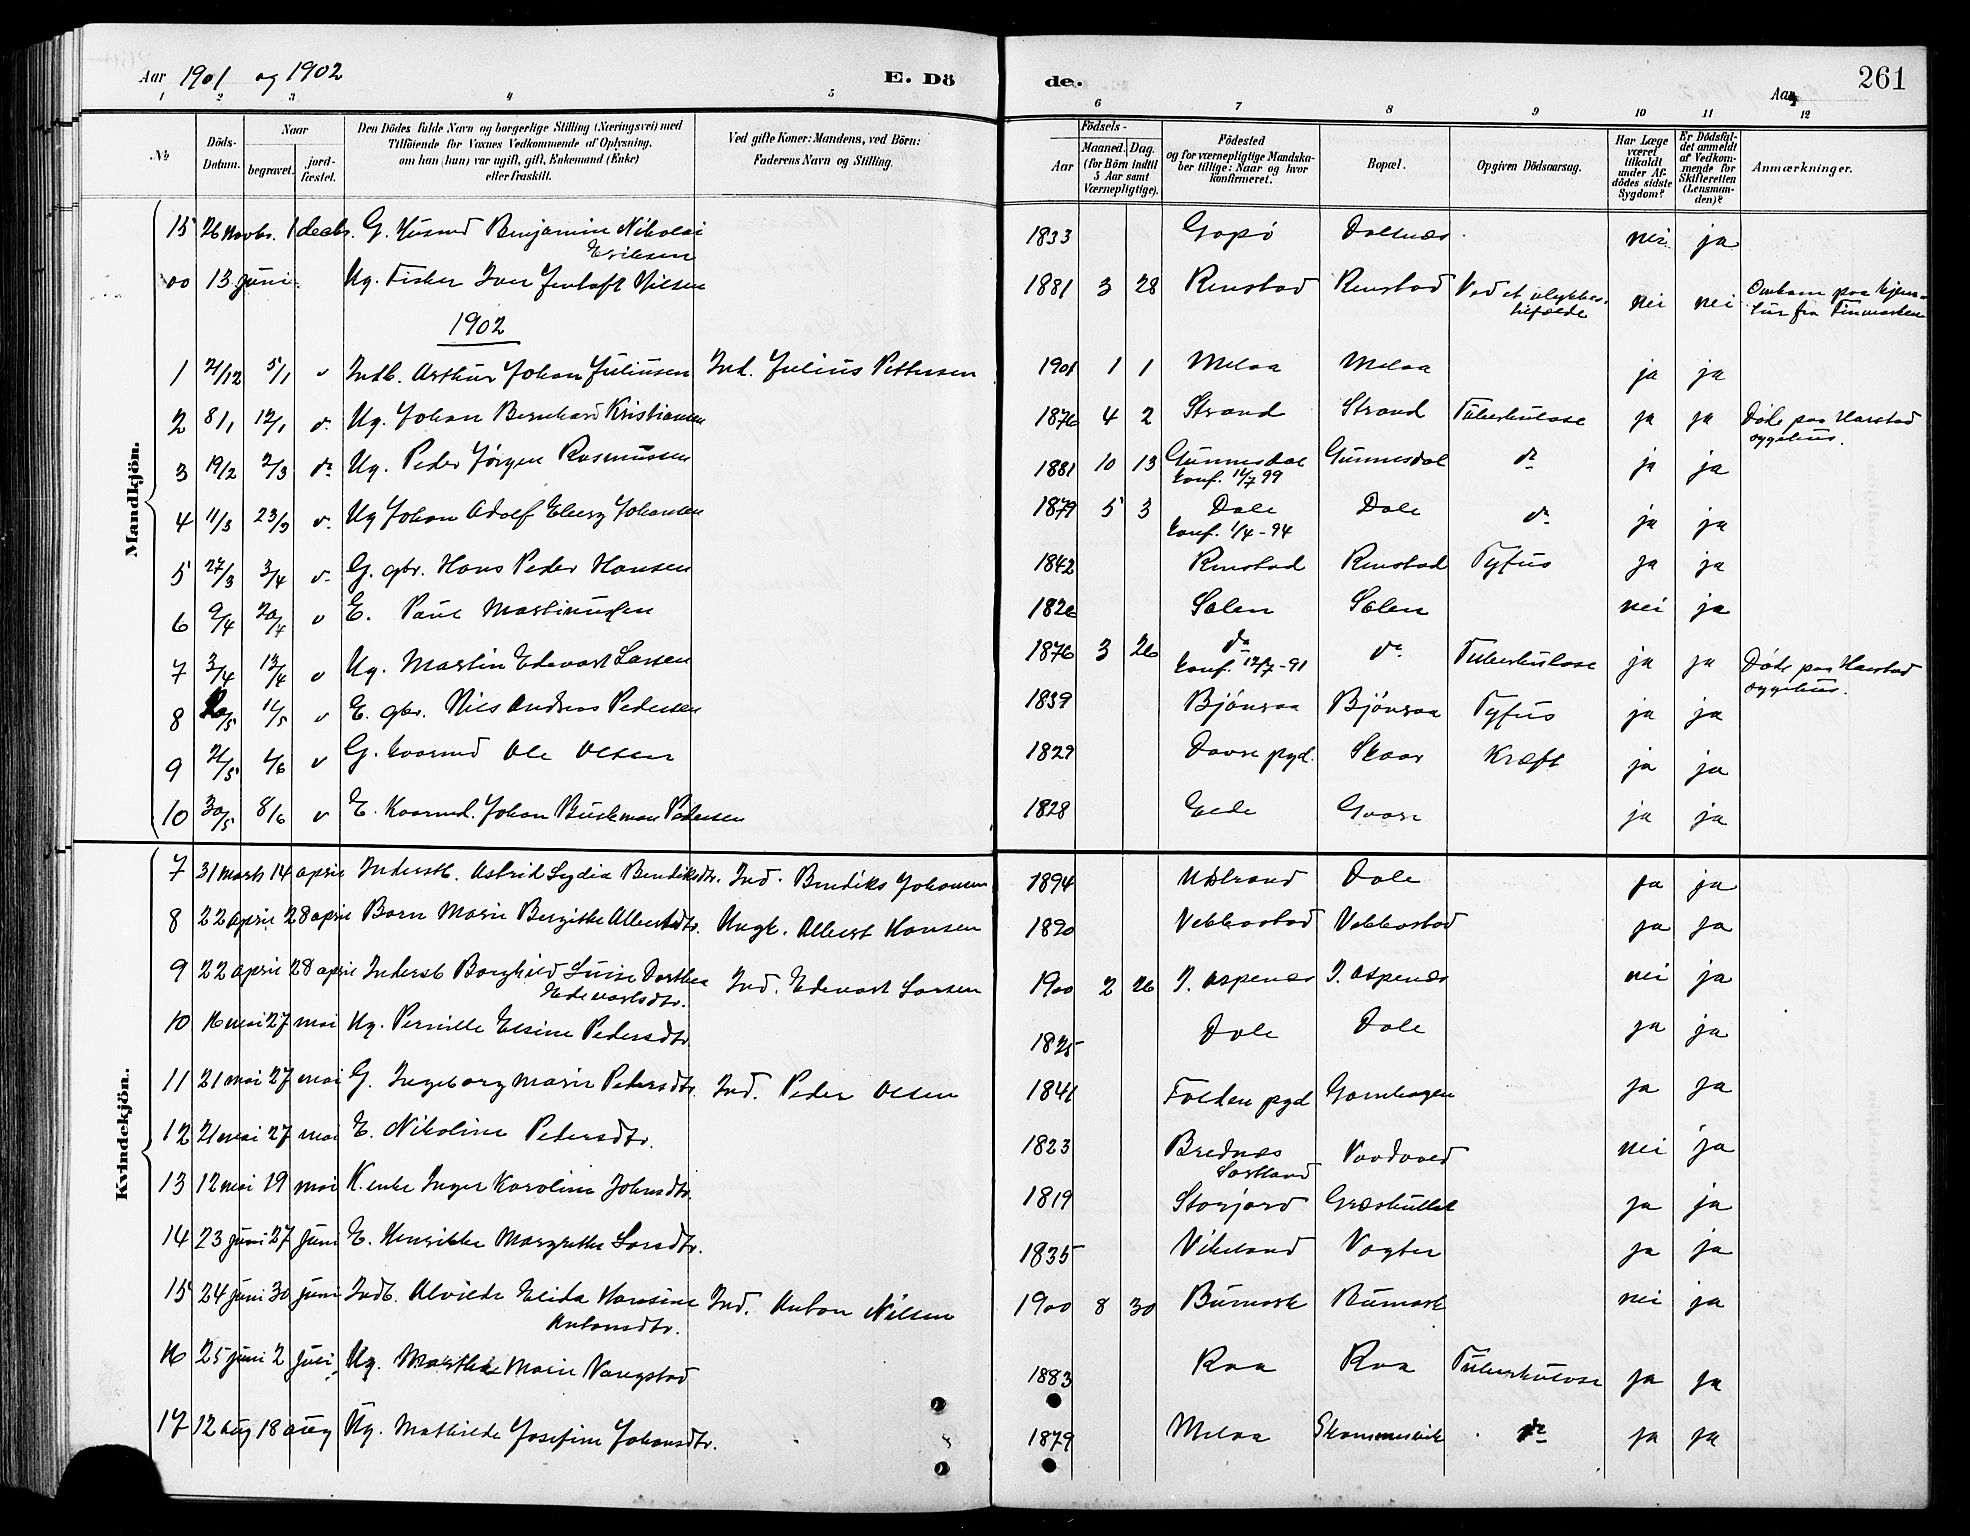 Aar 1901 og 1902 E. Dö de. Aar 261
1 2 3 4 5 6 7 8 9 10 11 12
No
Döds-Datum.
Naar
begravet.
jord-fæstet.
Den Dödes fulde Navn og borgerlige Stilling (Næringsvei) med
Tilföiende for Voxnes Vedkommende af Oplysning,
om han (hun) var ugift, gift, Enkemand (Enke)
eller fraskilt.
Ved gifte Koner: Mandens, ved Börn:
Faderens Navn og Stilling.
Födsels-
Aar
Maaned. Dag.
(for Börn indtil
5 Aar samt
Værnepligtige).
Födested
og for værnepligtige Mandska-
ber tillige: Naar og hvor
konfirmeret.
Bopæl.
Opgiven Dödsaarsag.
Har Læge
været
tilkaldt
under Af-
dödes sidste
Sygdom?
Er Dödsfal-
det anmeldt
af Vedkom-
mende for
Skifteretten
(Lensman-
den)?
Anmærkninger.
Mandkjön.
15 26 Novbr. 1 decbr. G. Husmd Benjamin Nikolai Eriksen 1833 Gapö Dalsnæs nei ja
00 13 juni Ug. Fisker Iver Jentoft Nilsen 1881 3 28 Renstad Renstad Ved et ulykkes-tilfælde nei nei Omkom paa hjem-tur fra Finmarken
1902
1 21/12 5/1 v Indb. Arthur Johan Juliusen Ind. Julius Pettersen 1901 1 1 Melaa Melaa ja ja
2 8/1 12/1 v. Ug. Johan Bernhard Kristiansen 1876 4 2 Strand Strand Tuberkulose ja ja Døde paa Harstad sygehus.
3 19/2 2/3 do Ug. Peder Jörgen Rasmussen 1881 10 13 Gunnesdal konf. 16/7 99 Gunnesdal do ja ja
4 11/3 23/3 v. Ug Johan Adolf Elberg Johansen 1879 5 3 Dale konf. 1/4-94 Dale do ja ja
5 27/3 3/4 v. G. gbr. Hans Peder Hansen 1842 Renstad Renstad Tyfus ja ja
6 9/4 20/4 v E. Paul Martinussen Salen Salen nei ja
7 3/4 13/4 v Ug. Martin Edevart Larsen 1876 3 26 do konf. 12/7-91 do Tuberkulose ja ja Døde paa Harstad sygehus.
8 11/5 v E. gbr. Nils Andreas Pedersen 1839 Bjönraa Bjönraa Tyfus ja ja
9 21/5 1/6 v G. kaarmd Ole Olsen 1829 Davre pgd. Skaar Kræft ja ja
10 30/5 8/6 v E. Kaarmd. Johan Buchman Pedersen 1828 Elde Gaare ja ja
Kvindekjön.
7 31 marts 14 april Inderstb. Astrid Lydia Bendiksdtr. Ind. Bendiks Johansen 1894 Nöstrand Dale ja ja
8 22 april 28 april Barn Marie Bergitte Albertsdtr. Ungk. Albert Hansen 1890 Vebbostad Vebbostad ja ja
9 22 april 28 april Inderstb Borghild Luise Dorthea Edevartsdtr. Ind. Edevart Larsen 1900 2 26 I. Aspenæs I. Aspenæs nei ja
10 16 mai 27 mai Ug. Pernille Elsine Pedersdtr. 1825 Dale Dale ja ja
11 21 mai 27 mai G. Ingeborg Marie Pedersdtr. Ind. Peder Olsen 1841 Folden pgd Gamhaugen ja ja
12 21 mai 27 mai E. Nikoline Pedersdtr. 1823 Brednæs Sortland Vardaaed nei ja
13 12 mai 19 mai K. enke Inger Karoline Johnsdtr. 1819 Storjord Græshullet ja ja
14 23 juni 27 juni E. Henrikke Margrethe Larsdtr. 1835 Vikeland Vagter ja ja
15 24 juni 30 juni Indb. Alvilde Elida Hansine Antonsdtr. Ind. Anton Nilsen 1900 8 30 Bumark Bumark nei ja
16 25 juni 2 juli Ug. Marthe Marie Vangstad 1883 Raa Raa Tuberkulose ja ja
17 12 aug 18 aug Ug. Mathilde Josefine Johansdtr. 1879 Melaa Skommesvik do ja ja